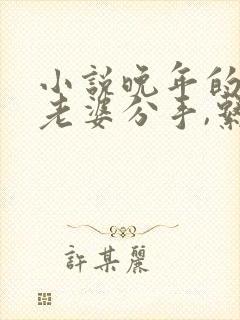 小説晚年的
老婆分手,
許某麗